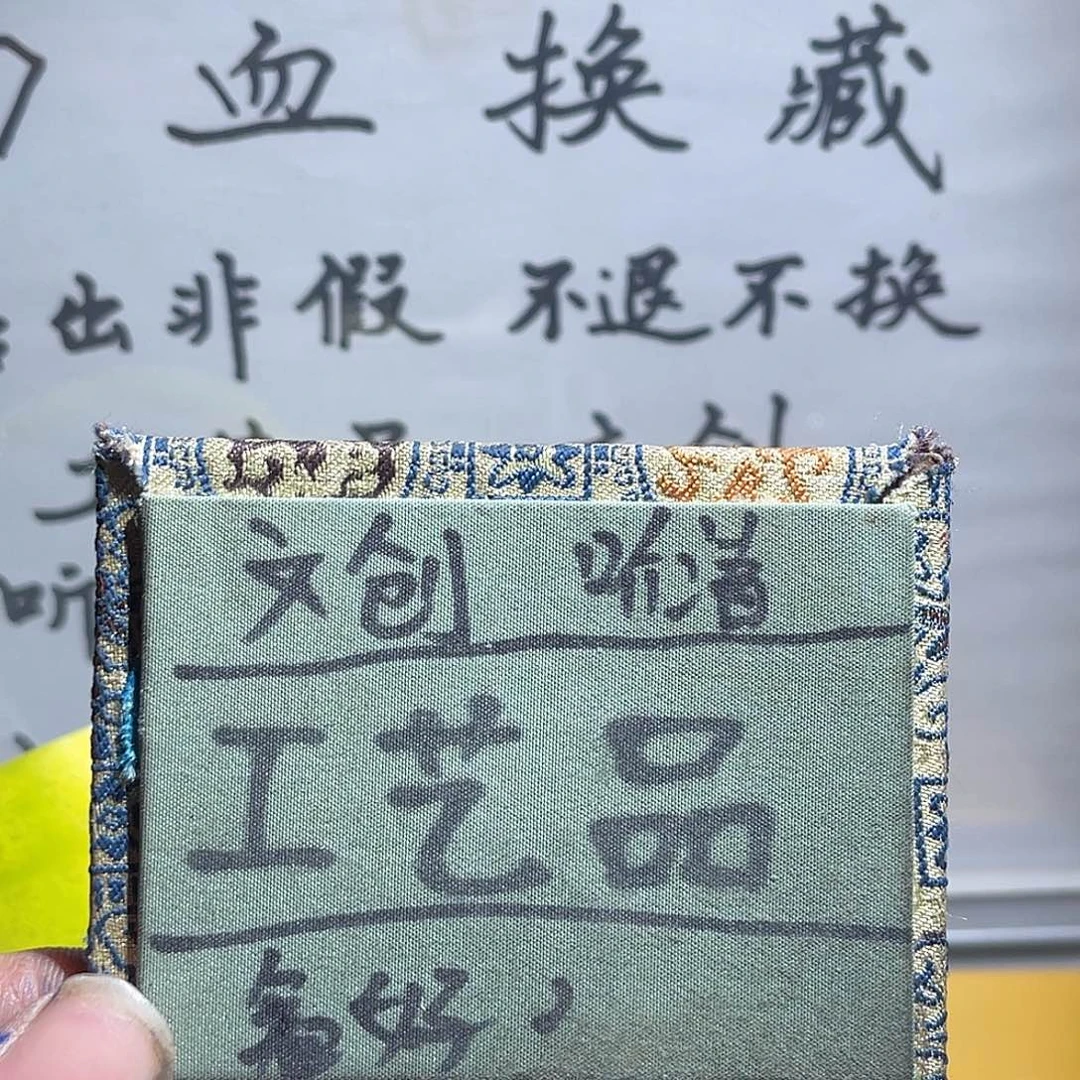 血换藏
出非假 不退不换
听
文创 听清
工艺品
好，